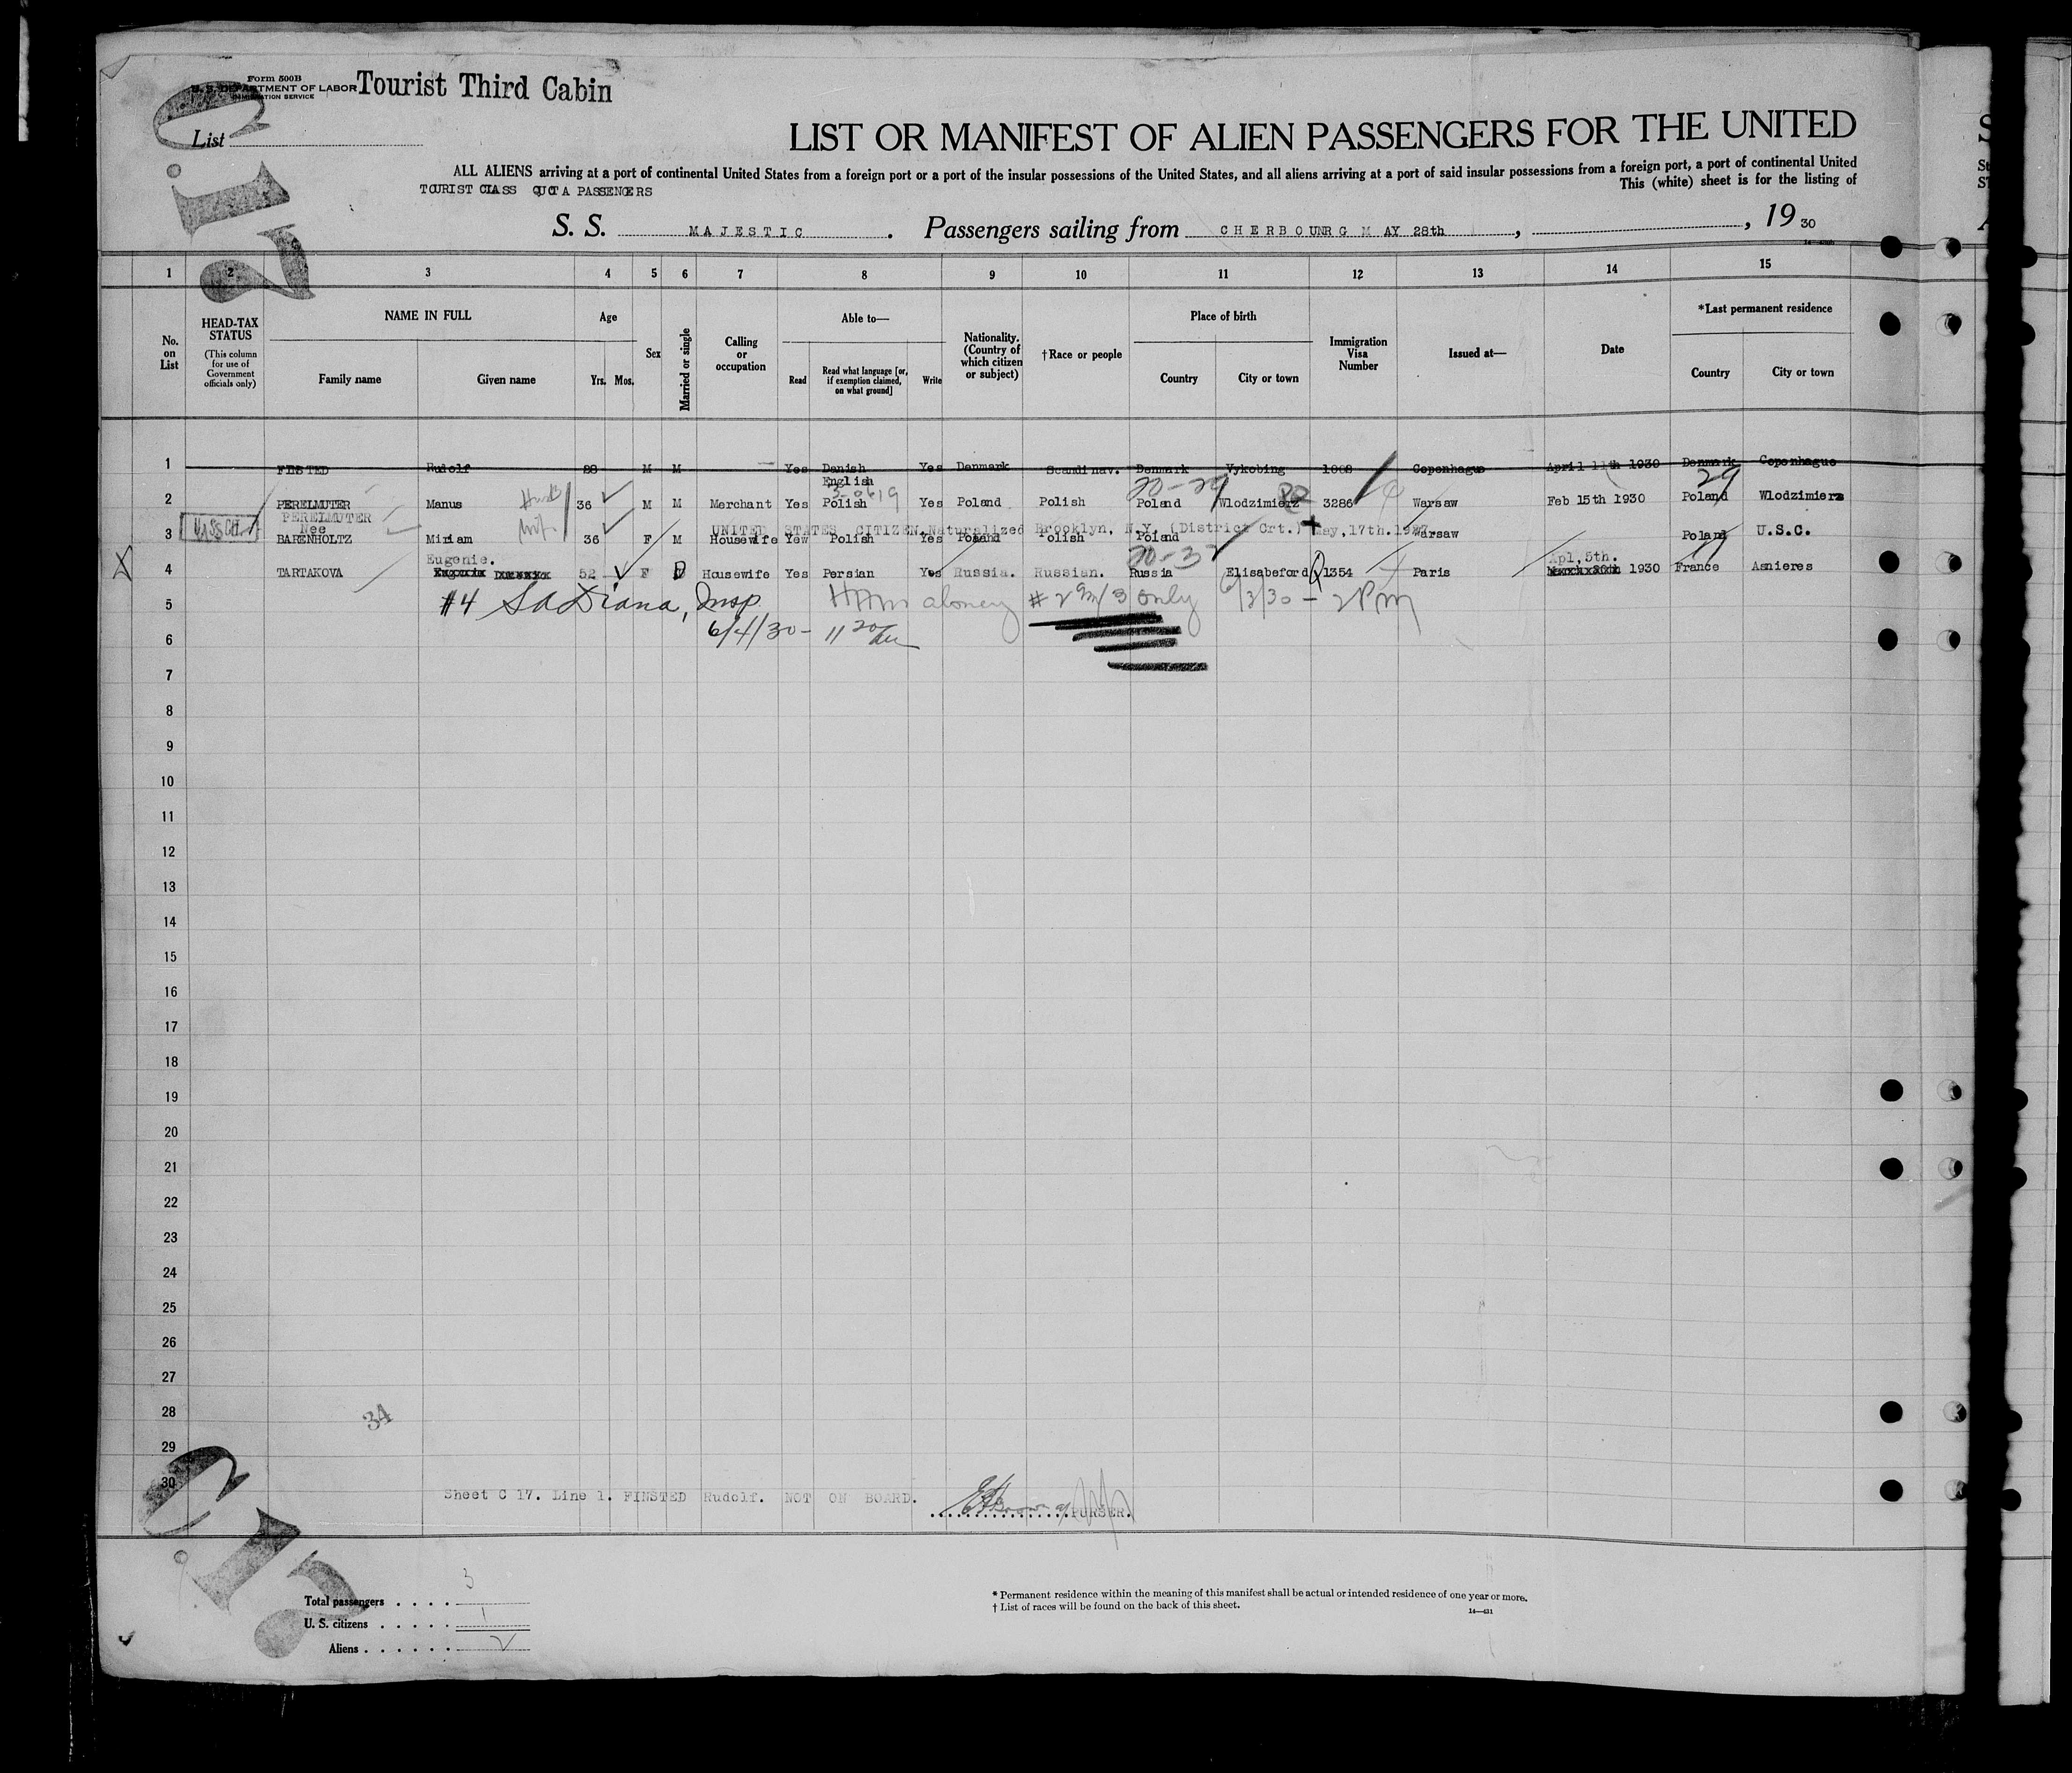 Form 500B
U. S. DEPARTMENT OF LABOR
IMMIGRATION SERVICE
Tourist Third Cabin
List
LIST OR MANIFEST OF ALIEN PASSENGERS FOR THE UNITED
ALL ALIENS arriving at a port of continental United States from a foreign port or a port of the insular possessions of the United States, and all aliens arriving at a port of said insular possessions from a foreign port, a port of continental United
This (white) sheet is for the listing of
TOURIST CLASS QUOTA PASSENGERS
S. S. MAJESTIC . Passengers sailing from CHERBOURG MAY 28th , , 19 30
1 2 3 4 5 6 7 8 9 10 11 12 13 14 15
No. on List
HEAD-TAX STATUS
(This column for use of Government officials only)
NAME IN FULL
Family name Given name
Age
Yrs. Mos.
Sex
Married or single
Calling or occupation
Able to—
Read
Read what language [or, if exemption claimed, on what ground]
Write
Nationality. (Country of which citizen or subject)
†Race or people
Place of birth
Country City or town
Immigration Visa Number
Issued at—
Date
*Last permanent residence
Country City or town
1 FINSTED Rudolf 28 M M Yes Danish Yes Denmark Scandinav. Denmark Vykobing 1008 Copenhague April 11th 1930 Denmark Copenhague
English
20-29 29
2 PERELMUTER Manus 36 M M Merchant Yes Polish Yes Poland Polish Poland Wlodzimierz 3286 Warsaw Feb 15th 1930 Poland Wlodzimierz
PERELMUTER
Nee
UNITED STATES CITIZEN Naturalized Brooklyn, N.Y. (District Crt.) May, 17th. 1927
3 BARENHOLTZ Miriam 36 F M Housewife Yew Polish Yes Poland Polish Poland Warsaw Poland U.S.C.
Eugenie. 20-3 Apl, 5th.
4 TARTAKOVA 52 F D Housewife Yes Persian Yes Russia. Russian. Russia Elisabeford 1354 Paris 1930 France Asnieres
5 #4 SaDiana, Insp. HMMaloney #2 and 3 only 6/3/30 - 2PM
6 6/4/30 - 11 20 AM
7
8
9
10
11
12
13
14
15
16
17
18
19
20
21
22
23
24
25
26
27
28
34
29
30
Sheet C 17. Line 1. FINSTED Rudolf. NOT ON BOARD.
PURSER.
Total passengers . . . . 3
U. S. citizens . . . . . 1
Aliens . . . . . . 2
* Permanent residence within the meaning of this manifest shall be actual or intended residence of one year or more.
† List of races will be found on the back of this sheet.
14—431